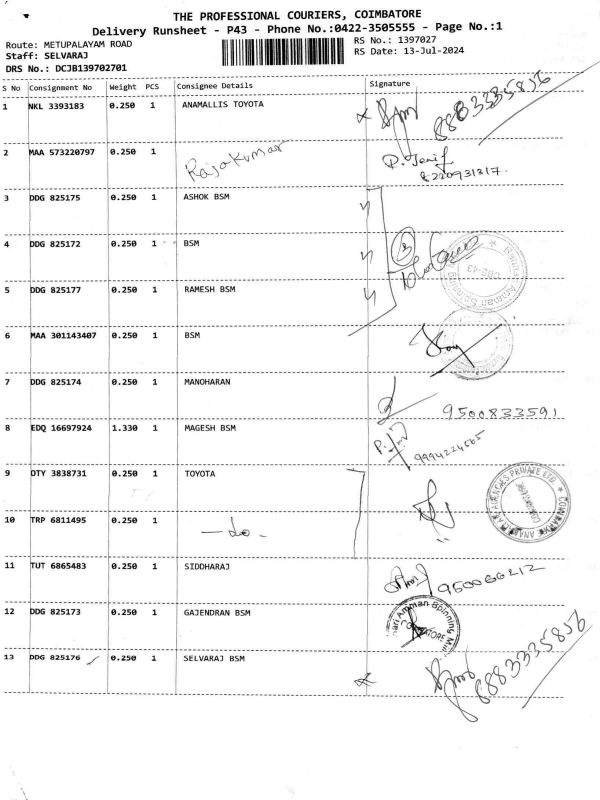 THE PROFESSIONAL COURIERS, COIMBATORE
Delivery Runsheet - P43 - Phone No.:0422-3505555 - Page No.:1
Route: METUPALAYAM ROAD RS No.: 1397027
Staff: SELVARAJ RS Date: 13-Jul-2024
DRS No.: DCJB139702701
S No Consignment No Weight PCS Consignee Details Signature
1 NKL 3393183 0.250 1 ANAMALLIS TOYOTA 8883335856
2 MAA 573220797 0.250 1 Rajakumar P. Jenif
8220931317.
3 DDG 825175 0.250 1 ASHOK BSM
4 DDG 825172 0.250 1 BSM
5 DDG 825177 0.250 1 RAMESH BSM
6 MAA 301143407 0.250 1 BSM
7 DDG 825174 0.250 1 MANOHARAN 9500833591
8 EDQ 16697924 1.330 1 MAGESH BSM 9994224565
9 OTY 3838731 0.250 1 TOYOTA
10 TRP 6811495 0.250 1 -do-
11 TUT 6865483 0.250 1 SIDDHARAJ
12 DDG 825173 0.250 1 GAJENDRAN BSM
13 DDG 825176 0.250 1 SELVARAJ BSM 8883335856